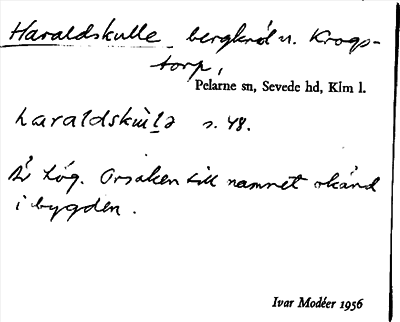 Haraldskulle bergknöl n. Krogs-
torp,
Pelarne sn, Sevede hd, Klm l.
haraldskùlə s. 48.
Är hög. Orsaken till namnet okänd
i bygden.
Ivar Modéer 1956